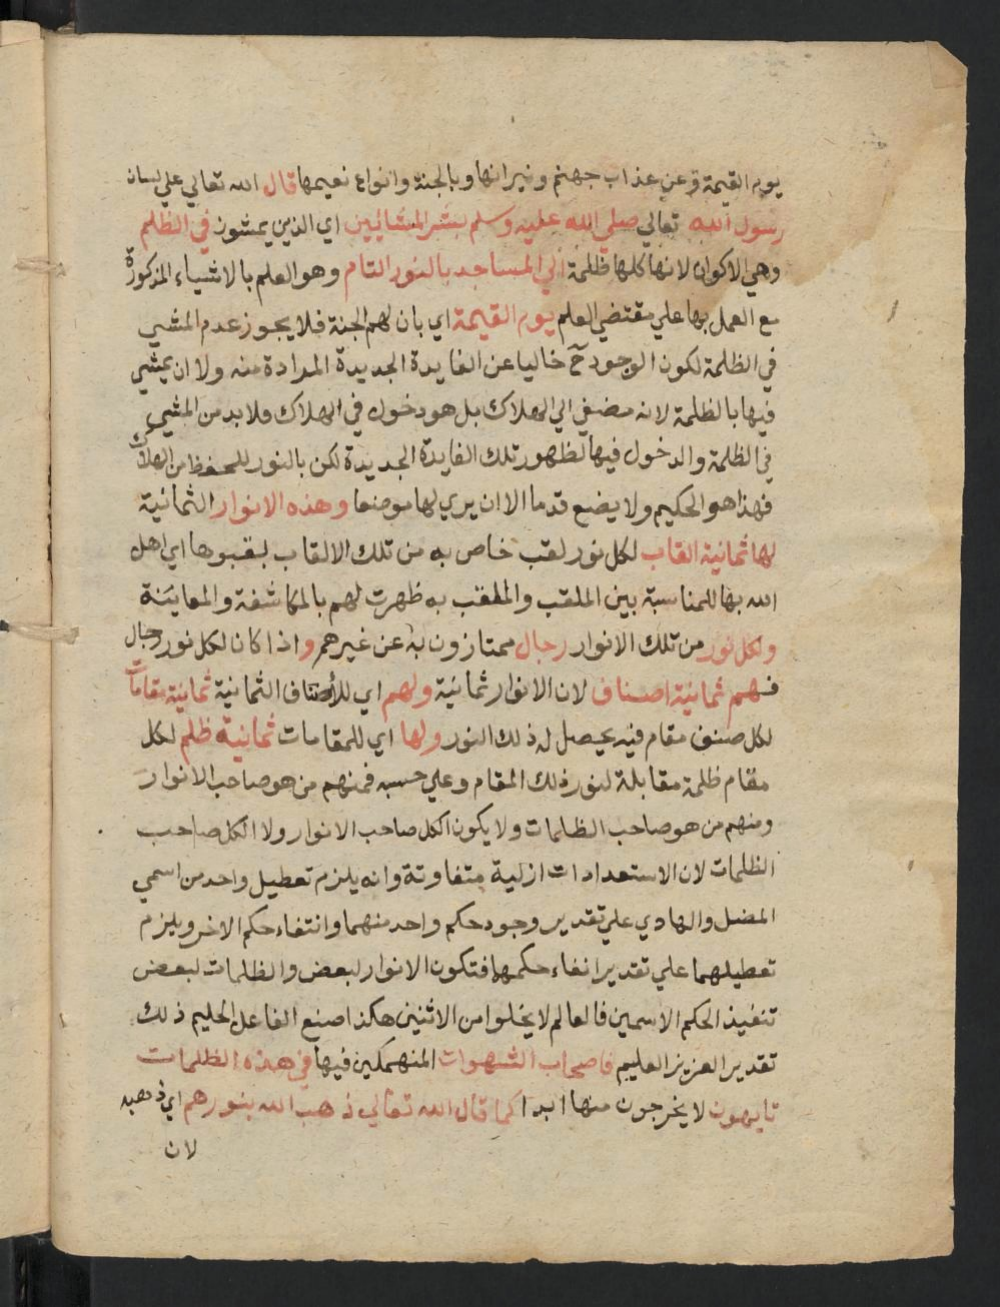 يوم القيمة وعن عذاب جهنم ونيرانها وبالجنة وانواع نعيمها قال الله تعالي علي لسان
رسول الله تعالي صلي الله عليه وسلم بشر المشائين اي الذين يمشون في الظلم
وهي الاكوان لانها كلها ظلمة الي المساجد بالنور التام وهو العلم بالاشياء المذكورة
مع العمل بها علي مقتضي العلم يوم القيمة اي بان لهم الجنة فلا يجوز عدم المشي
في الظلمة لكون الوجود ح خاليا عن الفايدة الجديدة المرادة منه ولا ان يمشي
فيها بالظلمة لانه مضفي الي الهلاك بل هو دخول في الهلاك فلا بد من المشي
في الظلمة والدخول فيها لظهور تلك الفايدة الجديدة لكن بالنور للحفظ من الهلاك
فهذا هو الحكيم ولا يضع قدما الا ان يري لها موضعا وهذه الانوار الثمانية
لها ثمانية القاب لكل نور لقب خاص به من تلك الالقاب لقبوها اي اهل
الله بها للمناسبة بين الملقب والملقب به ظهرت لهم بالمكاشفة والمعاينة
ولكل نور من تلك الانوار رجال ممتازون به عن غيرهم واذا كان لكل نور رجال
فهم ثمانية اصناف لان الانوار ثمانية ولهم اي للأصناف الثمانية ثمانية مقامات
لكل صنف مقام فيه يحصل له ذلك النور ولها اي للمقامات ثمانية ظلم لكل
مقام ظلمة مقابلة لنور ذلك المقام وعلي حسبه فمنهم من هو صاحب الانوار
ومنهم من هو صاحب الظلمات ولا يكون الكل صاحب الانوار ولا الكل صاحب
الظلمات لان الاستعدادات ازلية متفاوتة وانه يلزم تعطيل واحد من اسمي
المضل والهادي علي تقدير وجود حكم واحد منهما وانتفاء حكم الاخر ويلزم
تعطيلهما علي تقدير انفاء حكمهما فتكون الانوار لبعض والظلمات لبعض
تنفيذ الحكم الاسمين فالعالم لا يخلوا من الاثنين هكذا صنع الفاعل الحليم ذلك
تقدير العزيز العليم فاصحاب الشهوات المنهمكين فيها في هذه الظلمات
تايهون لا يخرجون منها ابدا كما قال الله تعالي ذهب الله بنورهم اي ذهبه
لان